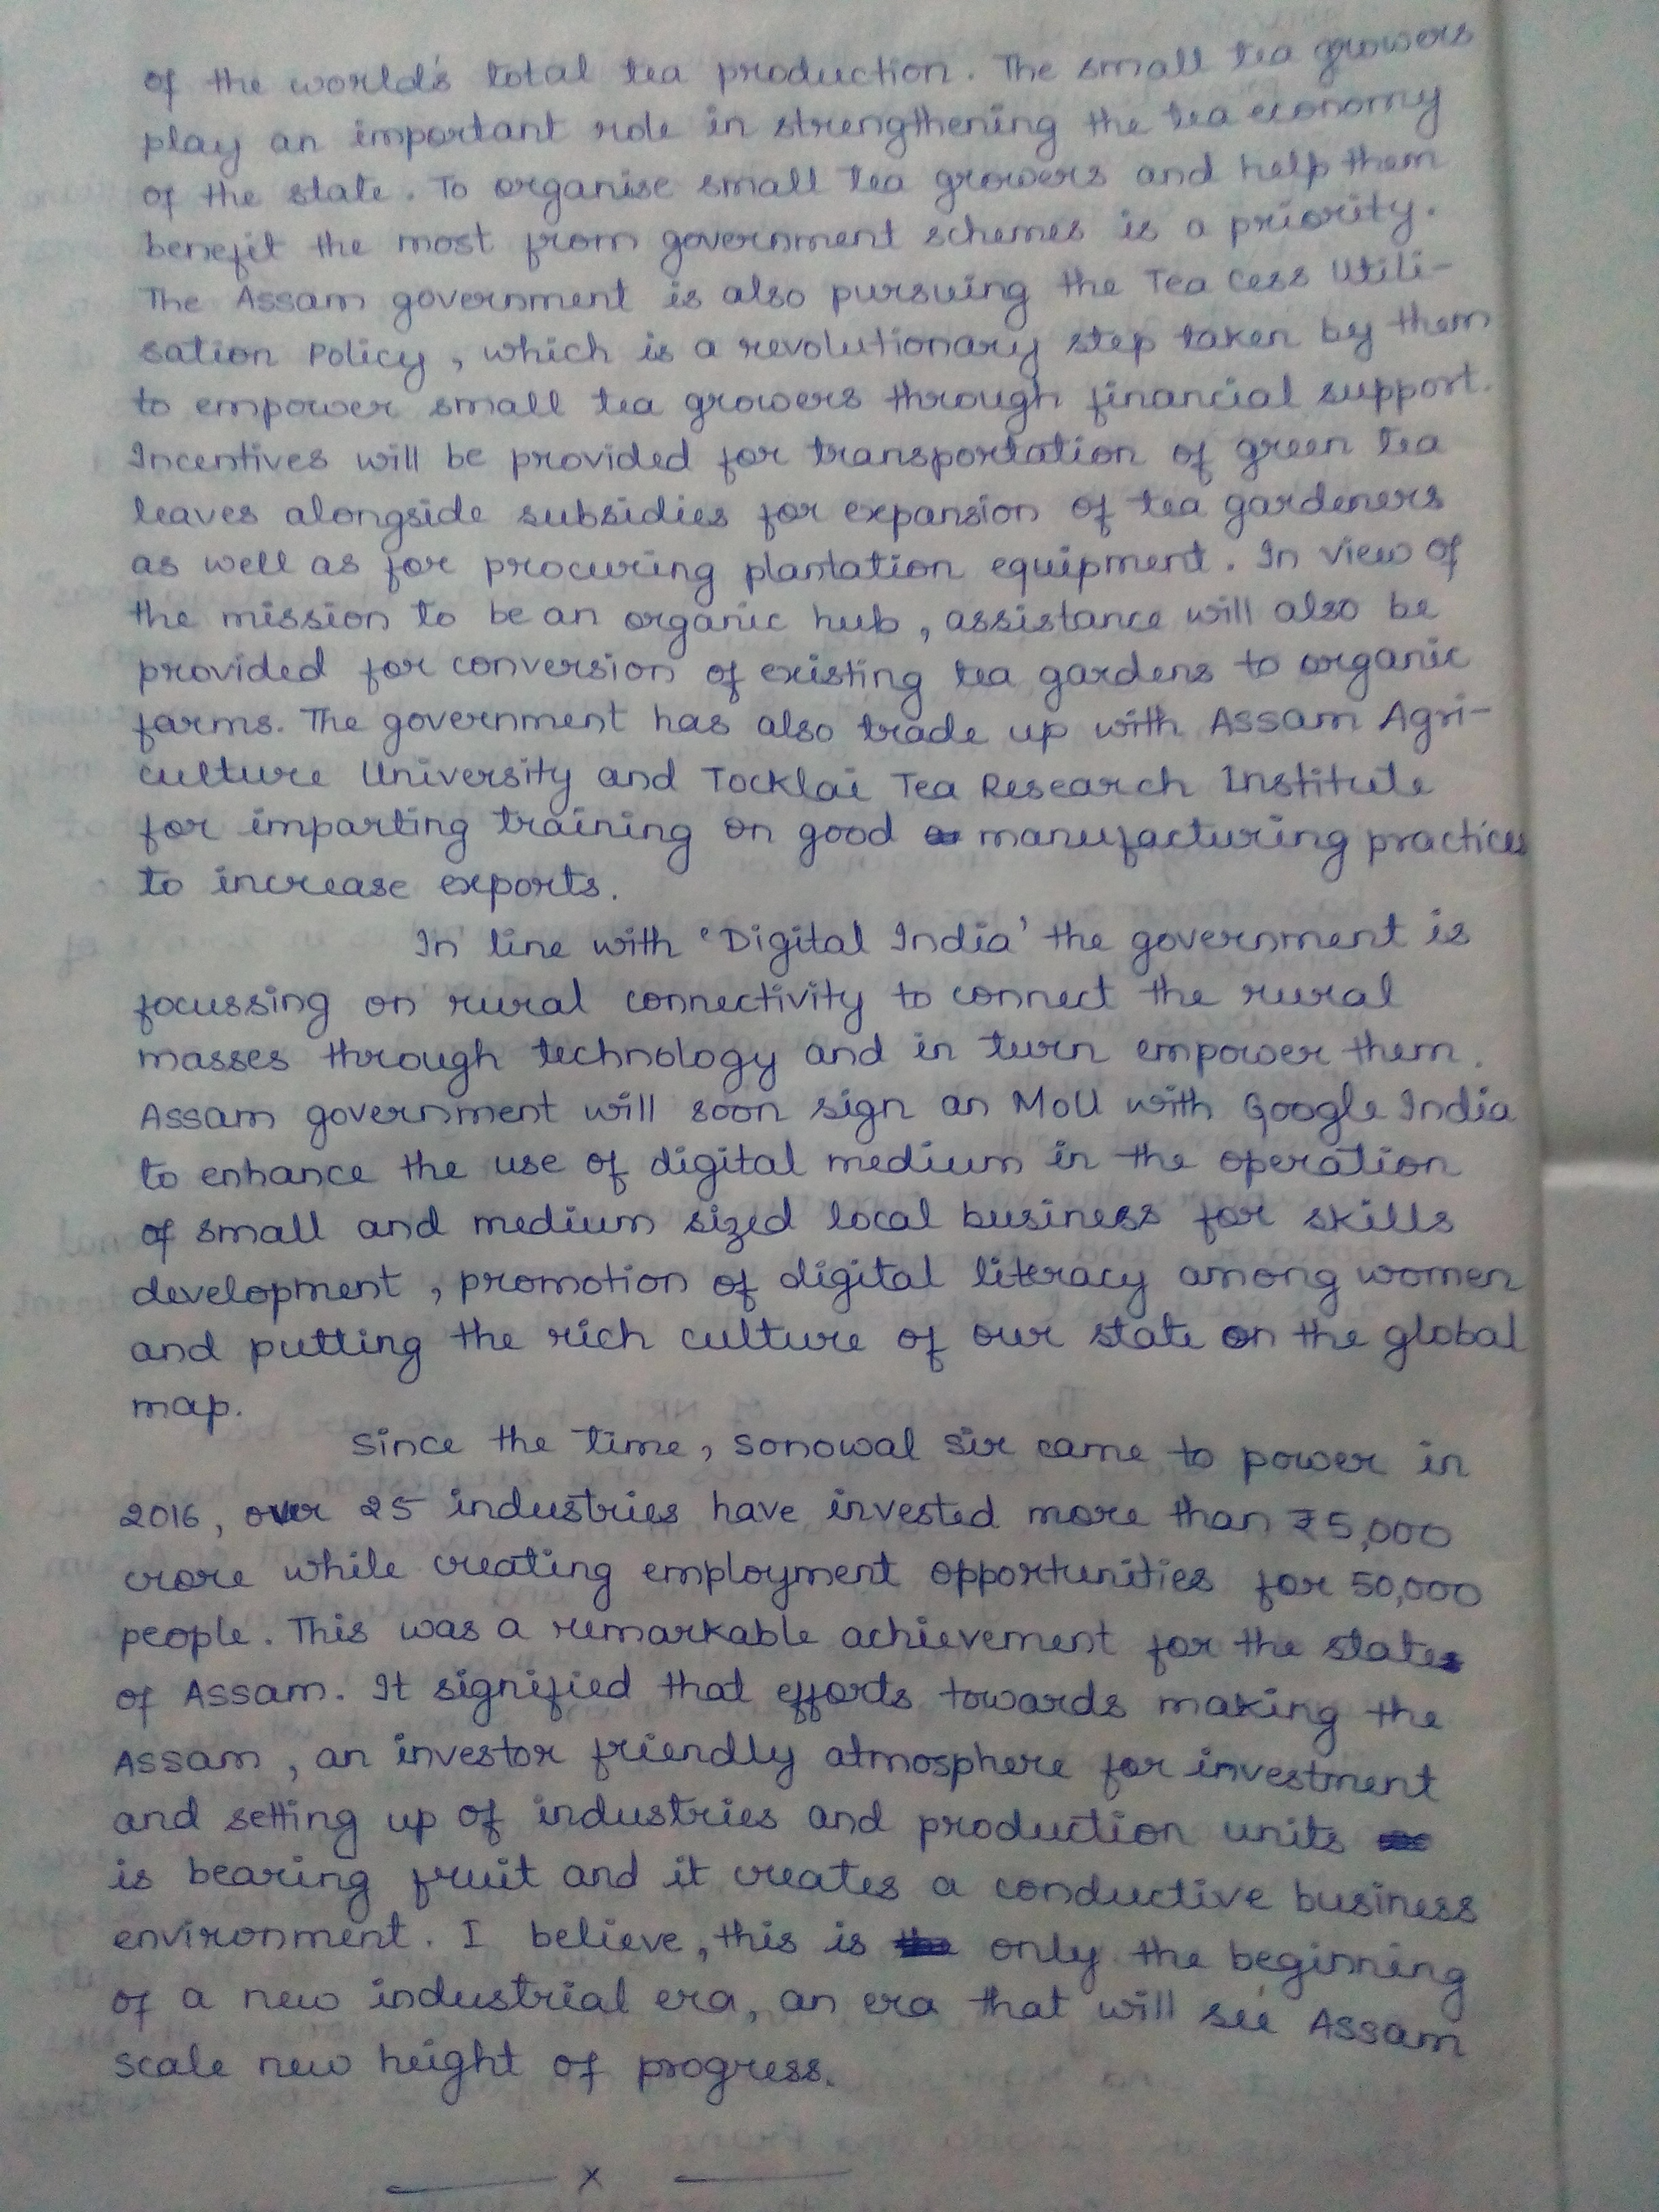 of the world's total tea production. The small tea growers
play an important role in strengthening the tea economy
of the state. To organise small tea growers and help them
benefit the most from government schemes is a priority.
The Assam government is also pursuing the Tea Cess Utili-
sation Policy, which is a revolutionary step taken by them
to empower small tea growers through financial support.
Incentives will be provided for transportation of green tea
leaves alongside subsidies for expansion of tea gardeners
as well as for procuring plantation equipment. In view of
the mission to be an organic hub, assistance will also be
provided for conversion of existing tea gardens to organic
farms. The government has also trade up with Assam Agri-
culture University and Tocklai Tea Research Institute
for imparting training on good manufacturing practices
to increase exports.
In line with 'Digital India' the government is
focussing on rural connectivity to connect the rural
masses through technology and in turn empower them.
Assam government will soon sign an MoU with Google India
to enhance the use of digital medium in the operation
of small and medium sized local business for skills
development, promotion of digital literacy among women
and putting the rich culture of our state on the global
map.
Since the time, Sonowal Sir came to power in
2016, over 25 industries have invested more than ₹5,000
crore while creating employment opportunities for 50,000
people. This was a remarkable achievement for the state
of Assam. It signified that efforts towards making the
Assam, an investor friendly atmosphere for investment
and setting up of industries and production units
is bearing fruit and it creates a conductive business
environment. I believe, this is only the beginning
of a new industrial era, an era that will see Assam
scale new height of progress.
—— x ——